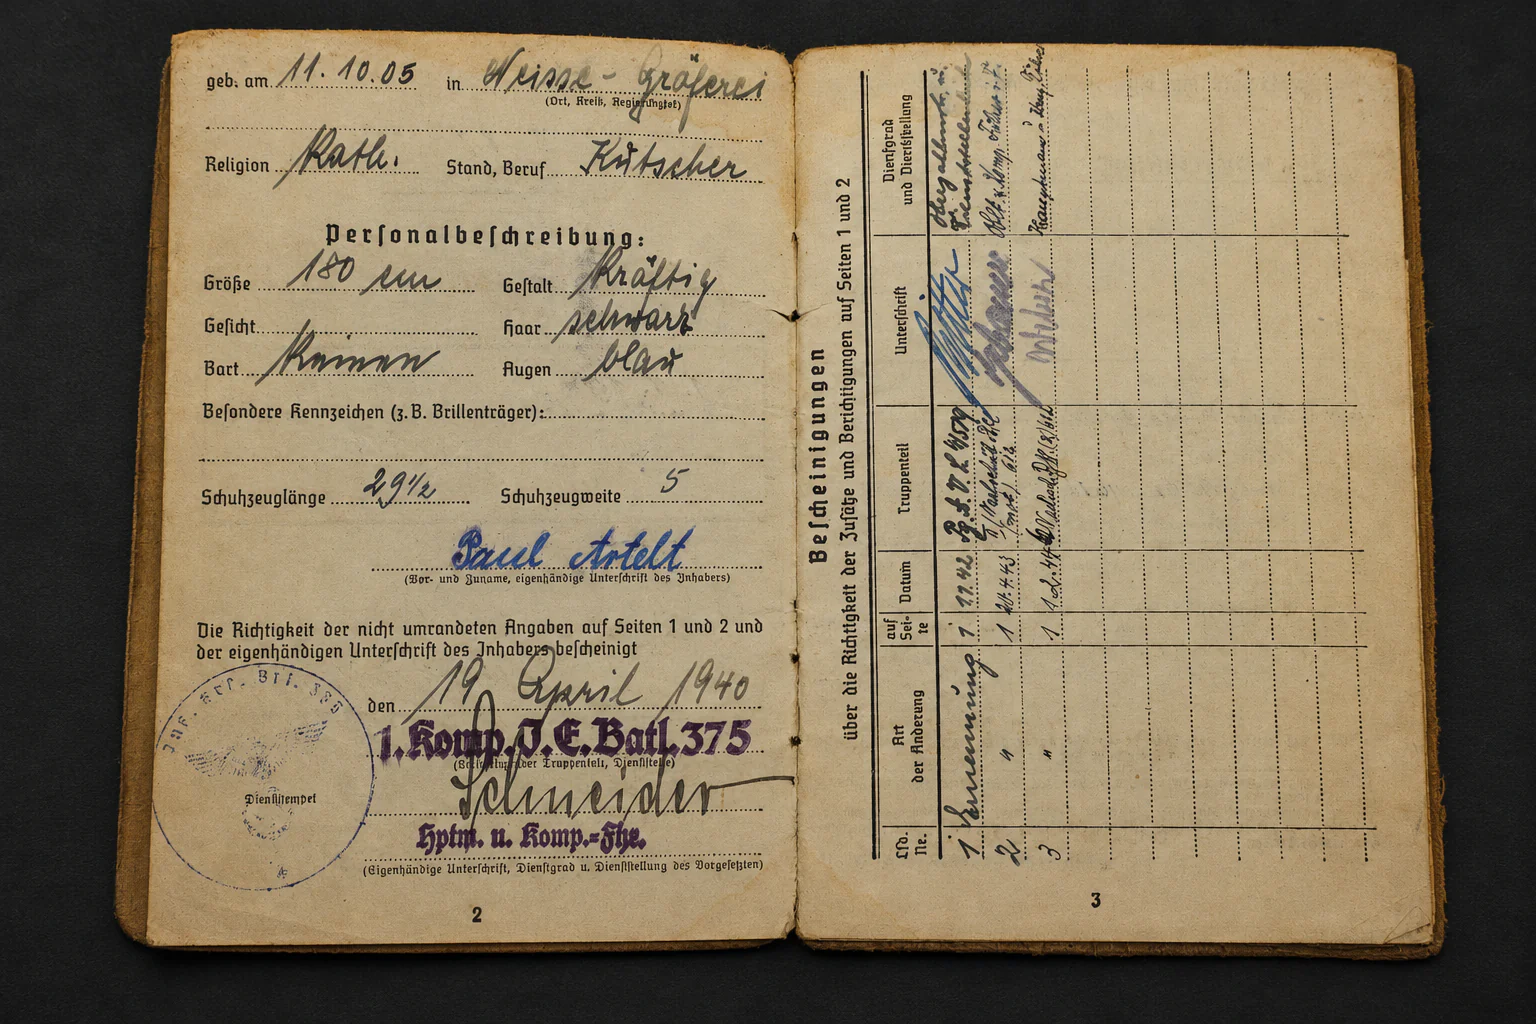 geb. am 11. 10. 05 in Neisse - Gräferei
(Ort, Kreis, Regierungsbez.)
Religion Kath. Stand, Beruf Kutscher
Personalbeschreibung:
Größe 180 cm Gestalt kräftig
Gesicht Haar schwarz
Bart Keinen Augen blau
Besondere Kennzeichen (z. B. Brillenträger):
Schuhzeuglänge 29 1/2 Schuhzeugweite 5
Paul Artelt
(Vor- und Zuname, eigenhändige Unterschrift des Inhabers)
Die Richtigkeit der nicht umrandeten Angaben auf Seiten 1 und 2 und
der eigenhändigen Unterschrift des Inhabers bescheinigt
den 19 April 1940
1. Komp. J. E. Batl. 375
Truppenteil, Dienststelle)
Schneider
Hptm. u. Komp.=Fhr.
(Eigenhändige Unterschrift, Dienstgrad u. Dienststellung des Vorgesetzten)
Dienststempel
2
Bescheinigungen
über die Richtigkeit der Zusätze und Berichtigungen auf Seiten 1 und 2
Lfd. Nr. Art der Änderung auf Seite Datum Truppenteil Unterschrift Dienstgrad und Dienststellung
1 1
2 " 1 20.4.43
3 " 1 1.2.44
3